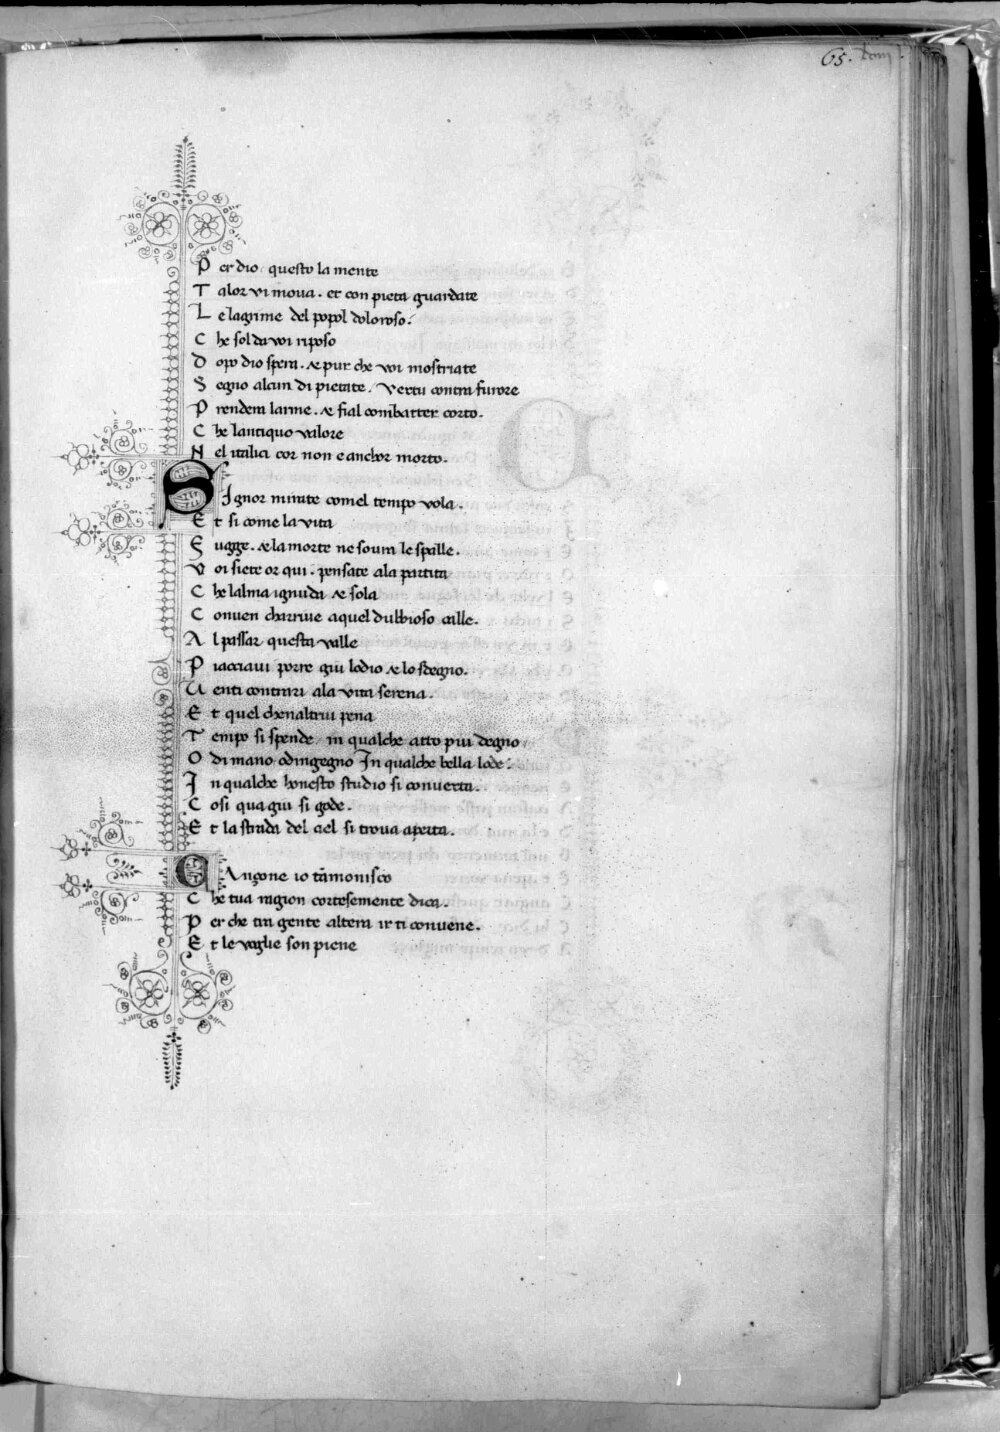 65.
Per dio. questo la mente
Talor vi mova. et con pieta guardate
Le lagrime del popol doloroso.
Che sol da voi riposo
Dopo dio spera. & pur che voi mostriate
Segno alcun di pietate. Vertu contra furore
Prendera larme. & fial combatter corto.
Che lantiquo valore
Nel italici cor non e anchor morto.
Signor mirate comel tempo vola.
Et si come la vita
Fugge. & la morte ne soura le spalle.
Voi siete or qui. pensate ala partita
Che lalma ignuda & sola
Conuen charriue aquel dubbioso calle.
Al passar questa valle
Piacciaui porre giu lodio & lo sdegno.
Venti contrari ala vita serena.
Et quel chenaltrui pena
Tempo si spende in qualche atto piu degno
O di mano od ingegno In qualche bella lode.
In qualche honesto studio si conuerta.
Cosi qua giu si gode.
Et la strada del ciel si trova aperta.
Cançone io tãmonisco
Che tua ragion cortesemente dica.
Per che tra gente altera ir ti conuene.
Et le voglie son piene